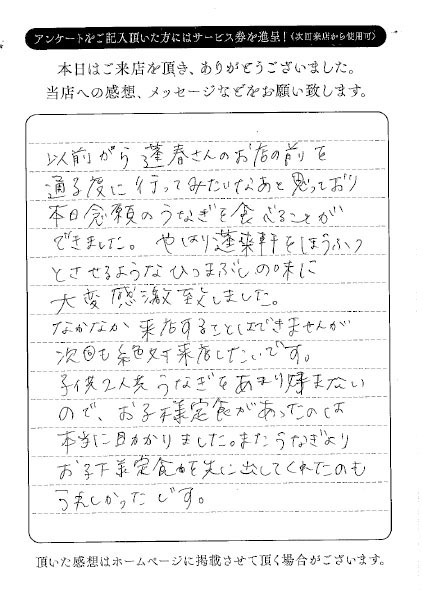 アンケートをご記入頂いた方にはサービス券を進呈！（次回来店から使用可）
本日はご来店を頂き、ありがとうございました。
当店への感想、メッセージなどをお願い致します。
以前から蓬春さんのお店の前を
通る度に行ってみたいなあと思っており
本日念願のうなぎを食べることが
できました。やはり蓬莱軒をほうふつ
とさせるようなひつまぶしの味に
大変感激致しました。
なかなか来店することはできませんが
次回も絶対来店したいです。
子供2人共うなぎをあまり好まない
ので、お子様定食があったのは
本当に助かりました。またうなぎより
お子様定食を先に出してくれたのも
うれしかったです。
頂いた感想はホームページに掲載させて頂く場合がございます。